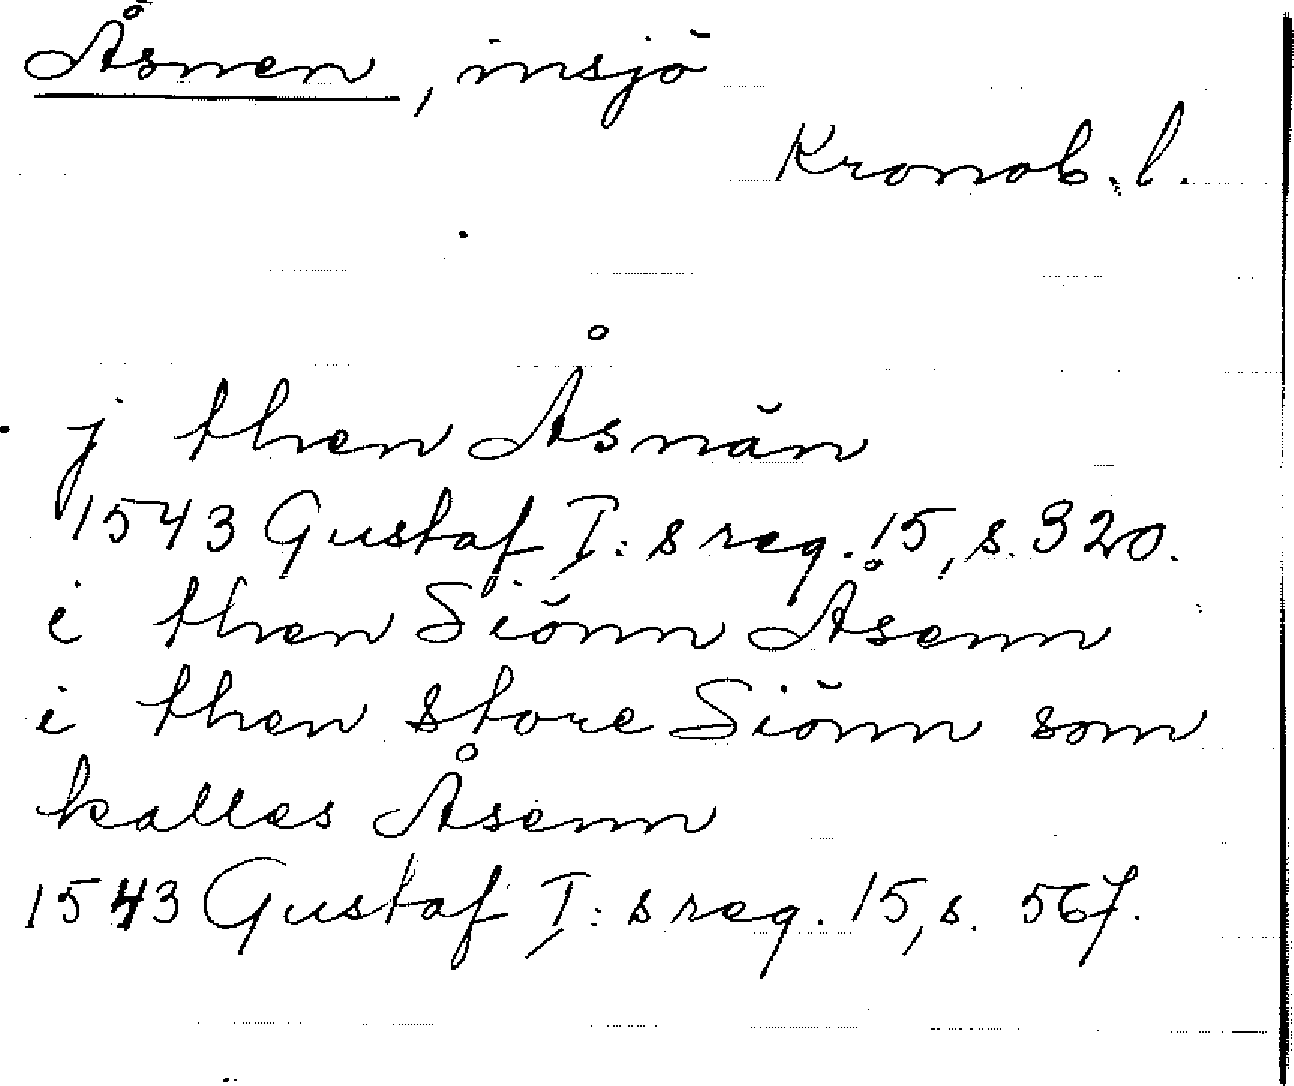 Åsnen, insjö
Kronob. l.
j then Åsnän
1543 Gustaf I:s reg. 15, s. 320.
i then Siönn Åsenn
i then store Siönn som
kalles Åsenn
1543 Gustaf I:s reg. 15, s. 567.